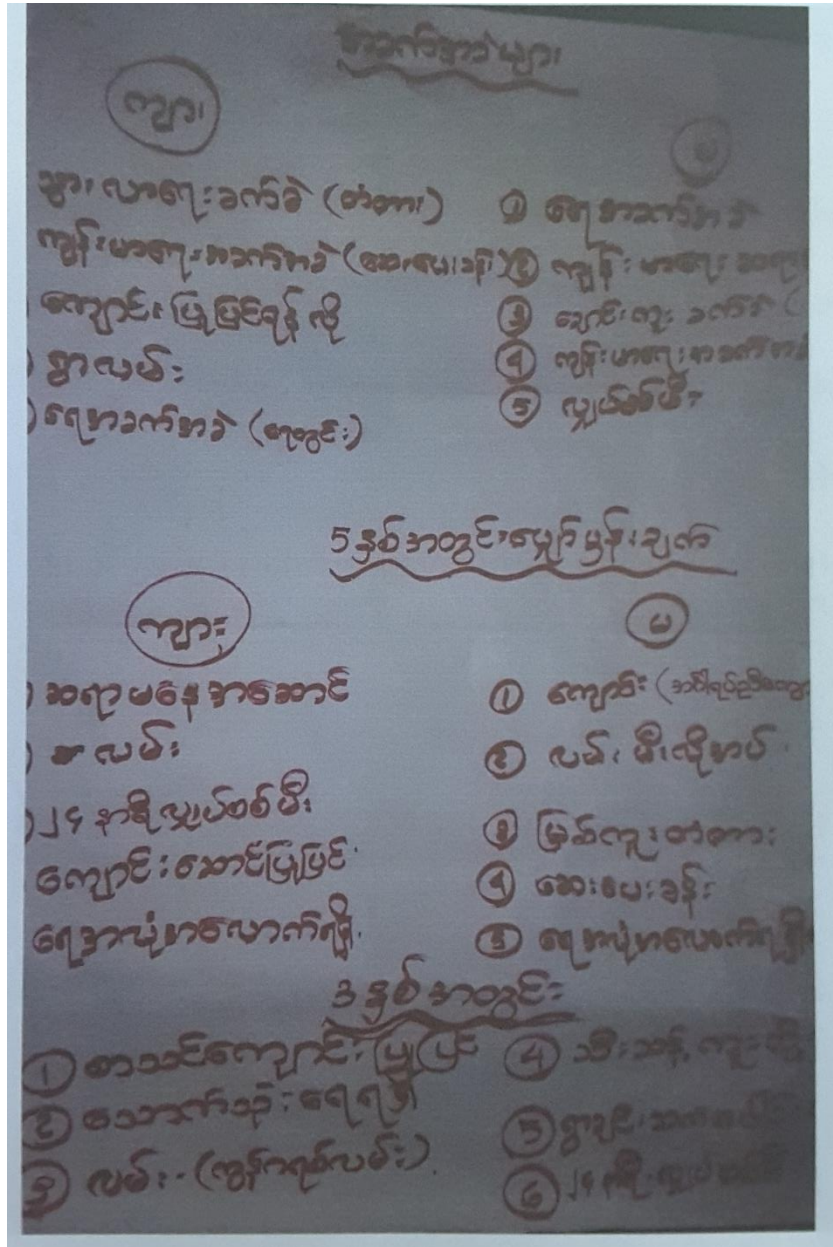 အခက်အခဲများ
ကျား
မ
သွားလာရေးခက်ခဲ (တံတား)
ကျန်းမာရေးအခက်အခဲ (ဆေးပေးခန်း)
ကျောင်းပြုပြင်ရန်လို
ရွာလမ်း
ရေအခက်အခဲ (ရေတွင်း)
① ရေအခက်အခဲ
② ကျန်းမာရေး
③ ချောင်းကူး ခက်ခဲ (
④ ကျန်းမာရေးအခက်အခဲ
⑤ လျှပ်စစ်မီး
5 နှစ်အတွင်းမျှော်မှန်းချက်
ကျား
မ
ဆရာမနေအဆောင်
လမ်း
၂၄ နာရီလျှပ်စစ်မီး
ကျောင်းဆောင်ပြုပြင်
ရေအလုံအလောက်ရရှိ
① ကျောင်း (
② လမ်းမီးလိုအပ်
③ မြစ်ကူးတံတား
④ ဆေးပေးခန်း
⑤ ရေအလုံအလောက်ရရှိ
3 နှစ်အတွင်း
① စာသင်ကျောင်းပြုပြင်
② သောက်သုံးရေရရှိ
③ လမ်း - (ကွန်ကရစ်လမ်း)
④
⑤ ရွာချင်းဆက်
⑥ ၂၄ နာရီ လျှပ်စစ်မီး